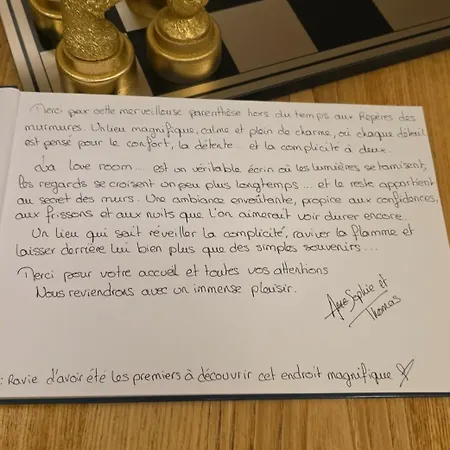 Merci pour cette merveilleuse parenthèse hors du temps aux Repères des
murmures. Un lieu magnifique, calme et plein de charme, où chaque détail
est pensé pour le confort, la détente... et la complicité à deux.
La love room... est un véritable écrin où les lumières se tamisent,
les regards se croisent un peu plus longtemps... et le reste appartient
au secret des murs. Une ambiance envoûtante, propice aux confidences,
aux frissons et aux nuits que l'on aimerait voir durer encore.
Un lieu qui sait réveiller la complicité, raviver la flamme et
laisser derrière lui bien plus que des simples souvenirs...
Merci pour votre accueil et toutes vos attentions
Nous reviendrons avec un immense plaisir.
Sophie et
Thomas
: Ravie d'avoir été les premiers à découvrir cet endroit magnifique